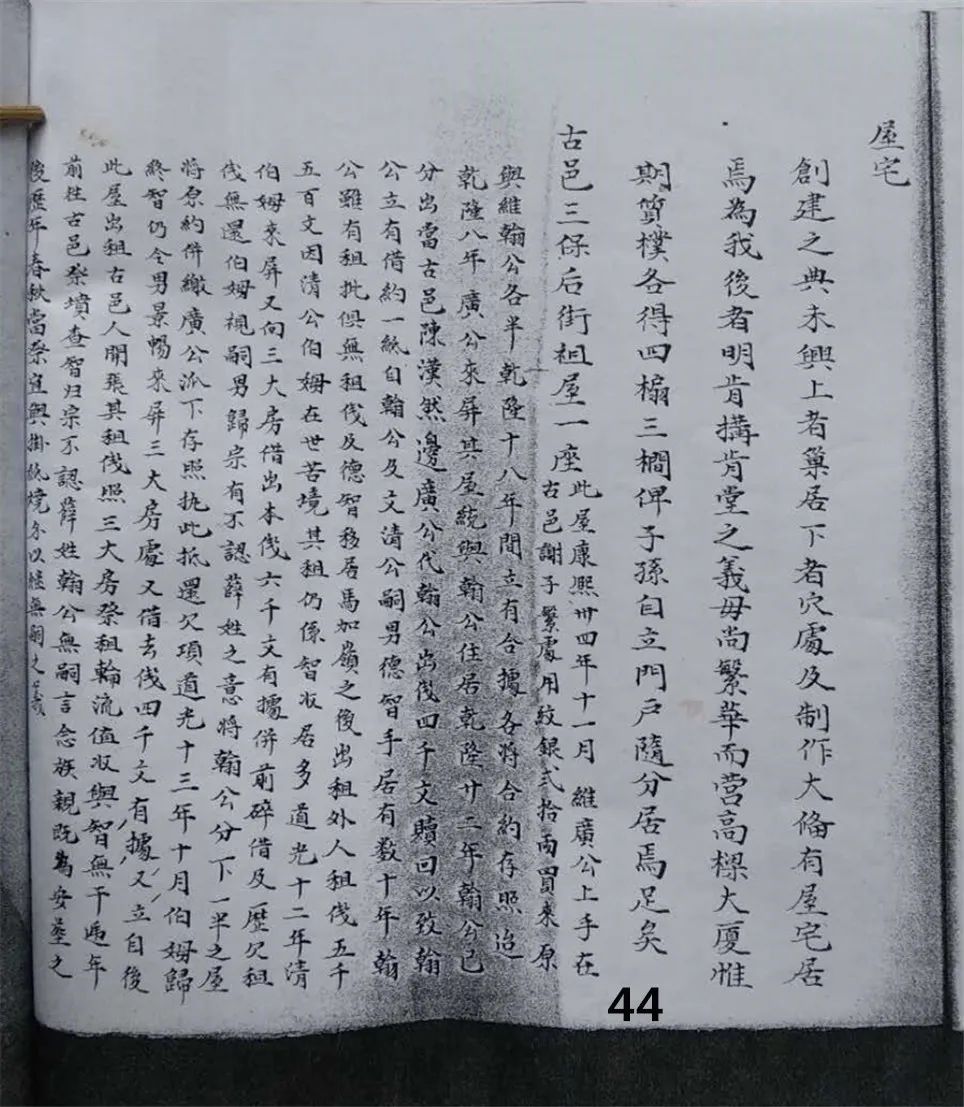 屋宅
創建之典未興上者巢居下者穴處及制作大備有屋宅居
焉為我後者明肯搆肯堂之義毋尚繁華而営高樑大厦惟
期質樸各得四楄三橺俾子孫自立門戸隨分居焉足矣
古邑三保后街祖屋一座此屋康熙卅四年十一月 維廣公上手在
古邑謝子繁處用紋銀弍拾兩買來原
與維翰公各半乾隆十八年間立有合據各將合約存照迨
乾隆八年廣公來屏其屋統與翰公住居乾隆廿二年翰公已
分出當古邑陳漢然邊廣公代翰公出伐四千文贖回以致翰
公立有借約一紙自翰公及文清公嗣男德智手居有数十年翰
公雖有租批俱無租伐及德智移居馬加嶺之後出租外人租伐五千
五百文因清公伯姆在世苦境其租仍係智收居多道光十二年清
伯姆來屏又向三大房借出本伐六千文有據併前碎借及歷欠租
伐無還伯姆視嗣男歸宗有不認薛姓之意將翰公分下一半之屋
將原約併繳廣公派下存照执此抵還欠項道光十三年十月伯姆歸
終智仍令男景暢來屏三大房處又借去伐四千文有據又立自後
此屋出租古邑人開張其租伐照三大房祭租輪流值收與智無干遞年
前往古邑祭墳查智归宗不認薛姓翰公無嗣言念族親既為安葬之
後歷年春秋當祭宜與掛紙燒尔以惟無嗣之義
44